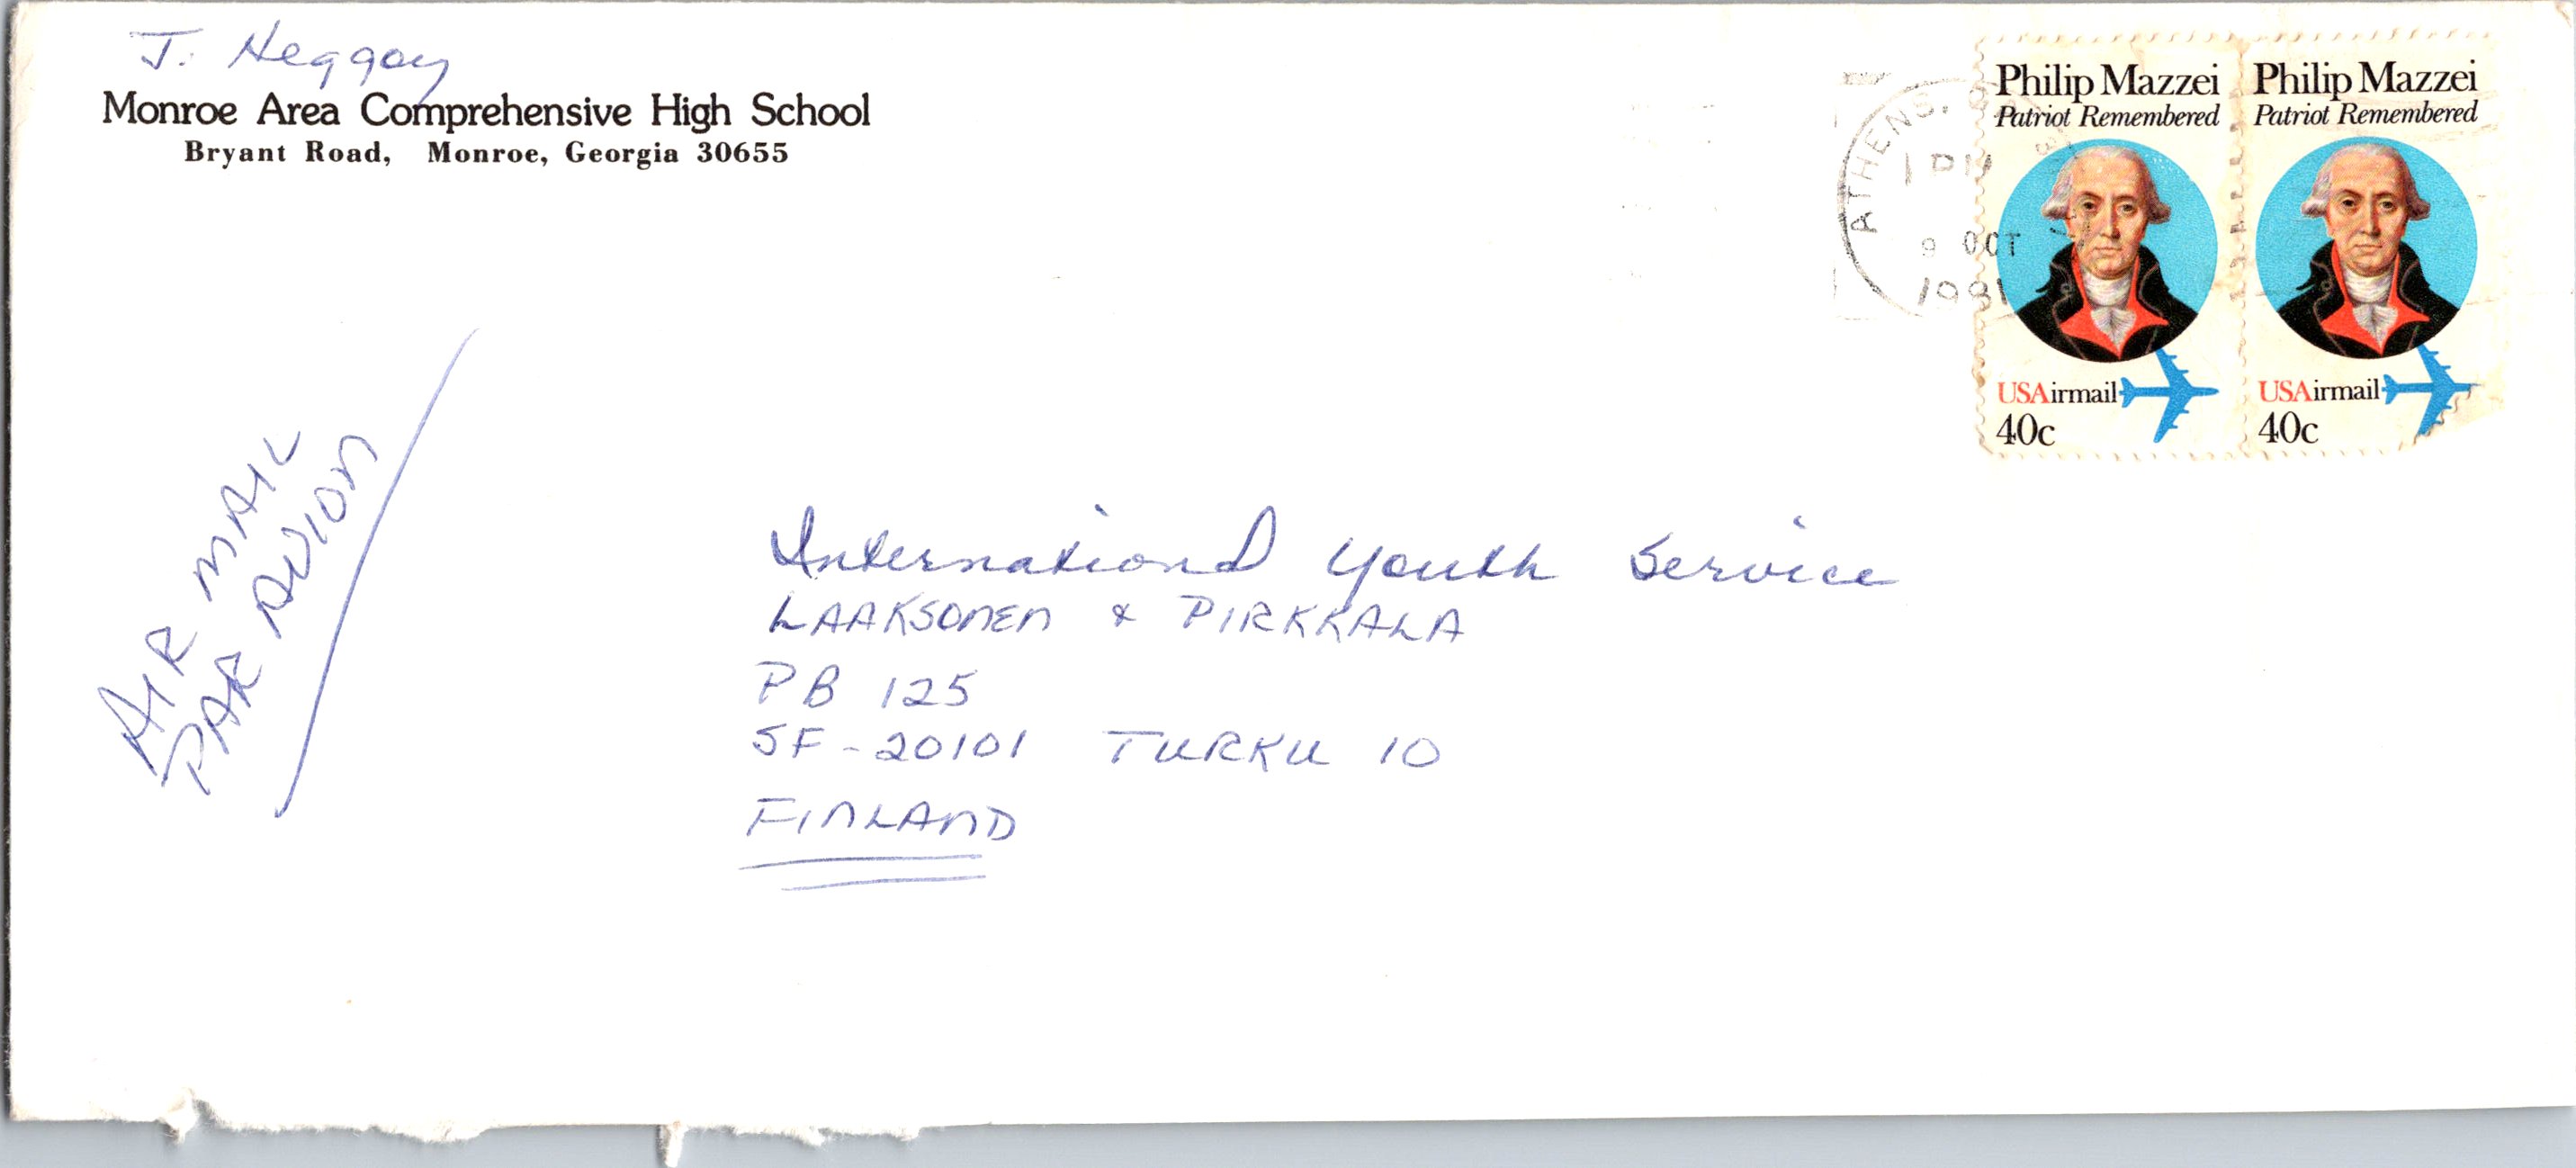 J. Heggoy
Monroe Area Comprehensive High School
Bryant Road, Monroe, Georgia 30655
ATHENS,
1 PM
9 OCT
1981
Philip Mazzei
Patriot Remembered
USAirmail
40c
Philip Mazzei
Patriot Remembered
USAirmail
40c
AIR MAIL
PAR AVION
International Youth Service
LAAKSONEN & PIRKKALA
PB 125
SF-20101 TURKU 10
FINLAND